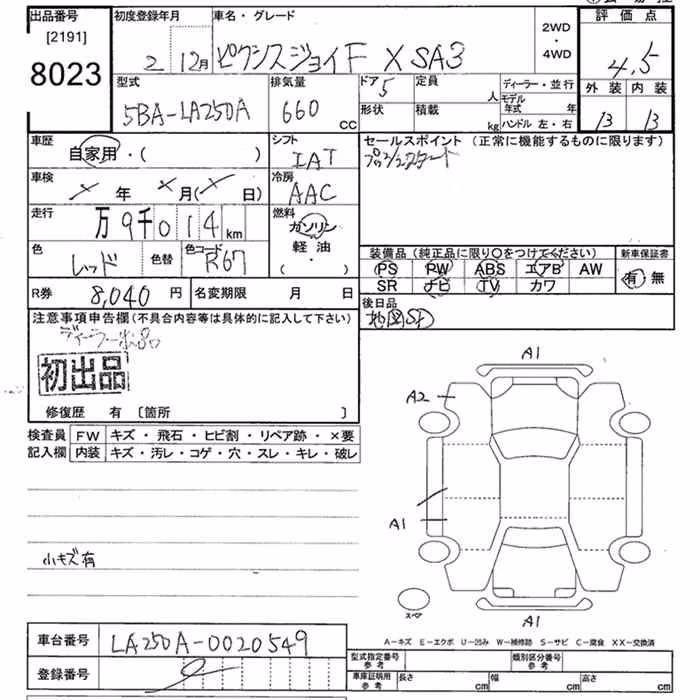 出品番号 初度登録年月 車名・グレード 2WD・4WD 評価点
[2191]
8023 2 12月 ピクシスジョイF X SA3 4.5
型式 排気量 ドア 5 定員 人 ディーラー・並行 外装 内装
5BA-LA250A 660 cc 形状 積載 kg モデル年式 年 13 13
ハンドル 左・右
車歴 シフト セールスポイント (正常に機能するものに限ります)
自家用・( ) IAT
車検 × 年 × 月 × 日 冷房 AAC
走行 万 9千 0 1 4 km 燃料 ガソリン
軽油
・( )
色 レッド 色替 色コード R67
装備品 (純正品に限り○をつけてください) 新車保証書
PS PW ABS エアB AW 有・無
SR ナビ TV カワ
R券 8,040 円 名変期限 月 日
後日品
地図SD
注意事項申告欄 (不具合内容等は具体的に記入して下さい)
初出品
修復歴 有 [箇所 ]
検査員 FW キズ・飛石・ヒビ割・リペア跡・×要
記入欄 内装 キズ・汚レ・コゲ・穴・スレ・キレ・破レ
A1
A2
A1
小キズ有
スペア
A1
A-キズ E-エクボ U-凹み W-補修跡 S-サビ C-腐食 XX-交換済
車台番号 LA250A-0020549
登録番号
型式指定番号 参考 類別区分番号 参考
車庫証明用 参考 長さ cm 幅 cm 高さ cm